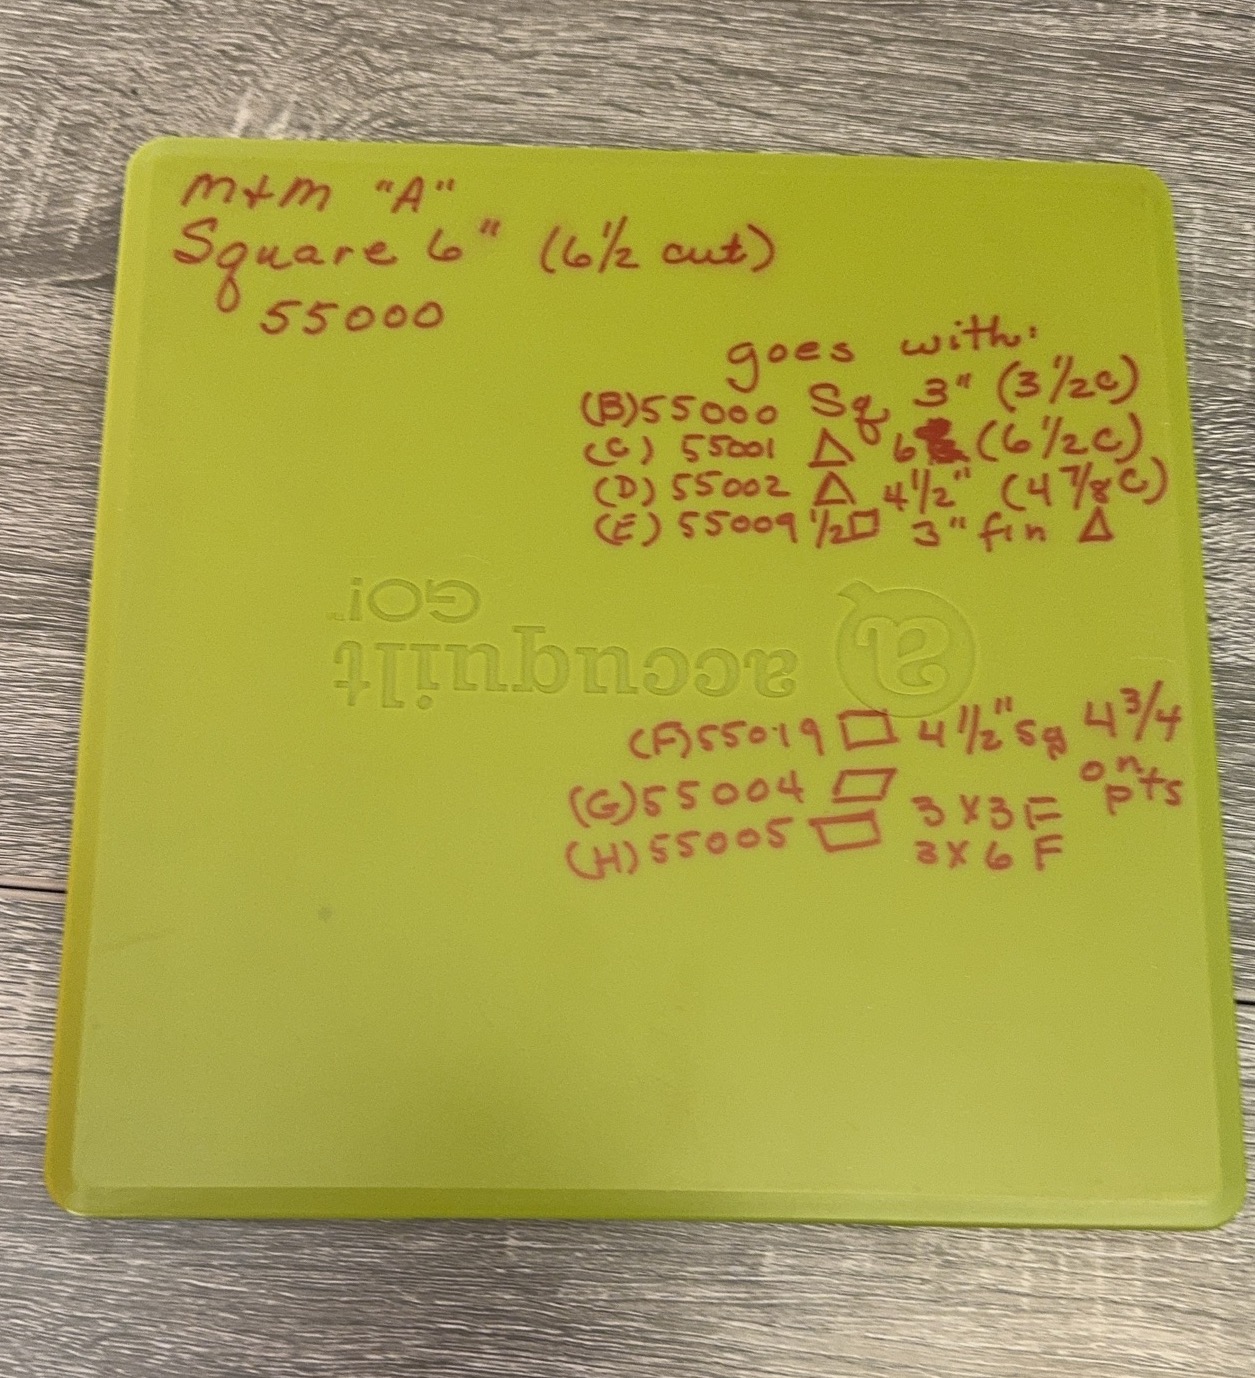 m+m "A"
Square 6" (6 1/2 cut)
55000
goes with:
(B) 55000 Sq 3" (3 1/2c)
(C) 55001 △ 6 (6 1/2c)
(D) 55002 △ 4 1/2" (4 7/8c)
(E) 55009 1/2□ 3" fin △
GO!™
accuquilt
a
(F) 55019 □ 4 1/2" Sq 4 3/4
on pts
(G) 55004 ▱ 3 X 3 F
(H) 55005 □ 3 X 6 F